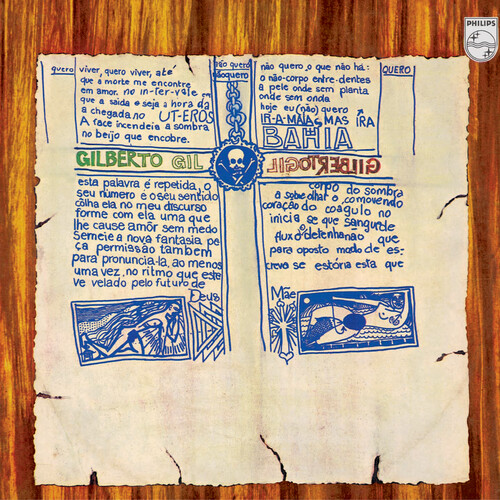 PHILIPS
quero
viver, quero viver, até
que a morte me encontre
em amor. no in-ter-vale em
que a saida e seja a hora da
a chegada no UT-EROS
A face incendeia a sombra
no beijo que encobre.
não quero
nãoquero
não quero o que não há:
o não-corpo entre-dentes
a pele onde sem planta
onde sem onda
hoje eu (não) quero
IR-A-MÁIAS MAS IRA
BAHIA
QUERO
GILBERTO GIL
GILBERTOGIL
esta palavra é repetida, o
seu número é o seu sentido
colha ela no meu discurso
forme com ela uma que
lhe cause amôr sem medo
Semeie a nova fantasia pe
ça permissão tambem
para pronuncia-la, ao menos
uma vez, no ritmo que este
ve velado pelo futuro de
Deus
corpo do sombra
a sobe olhar o, comovendo
coração do coagulo no
inicia se que sangue de
flux o detenha não que
para oposto modo de es-
creva se estória esta que
Mãe